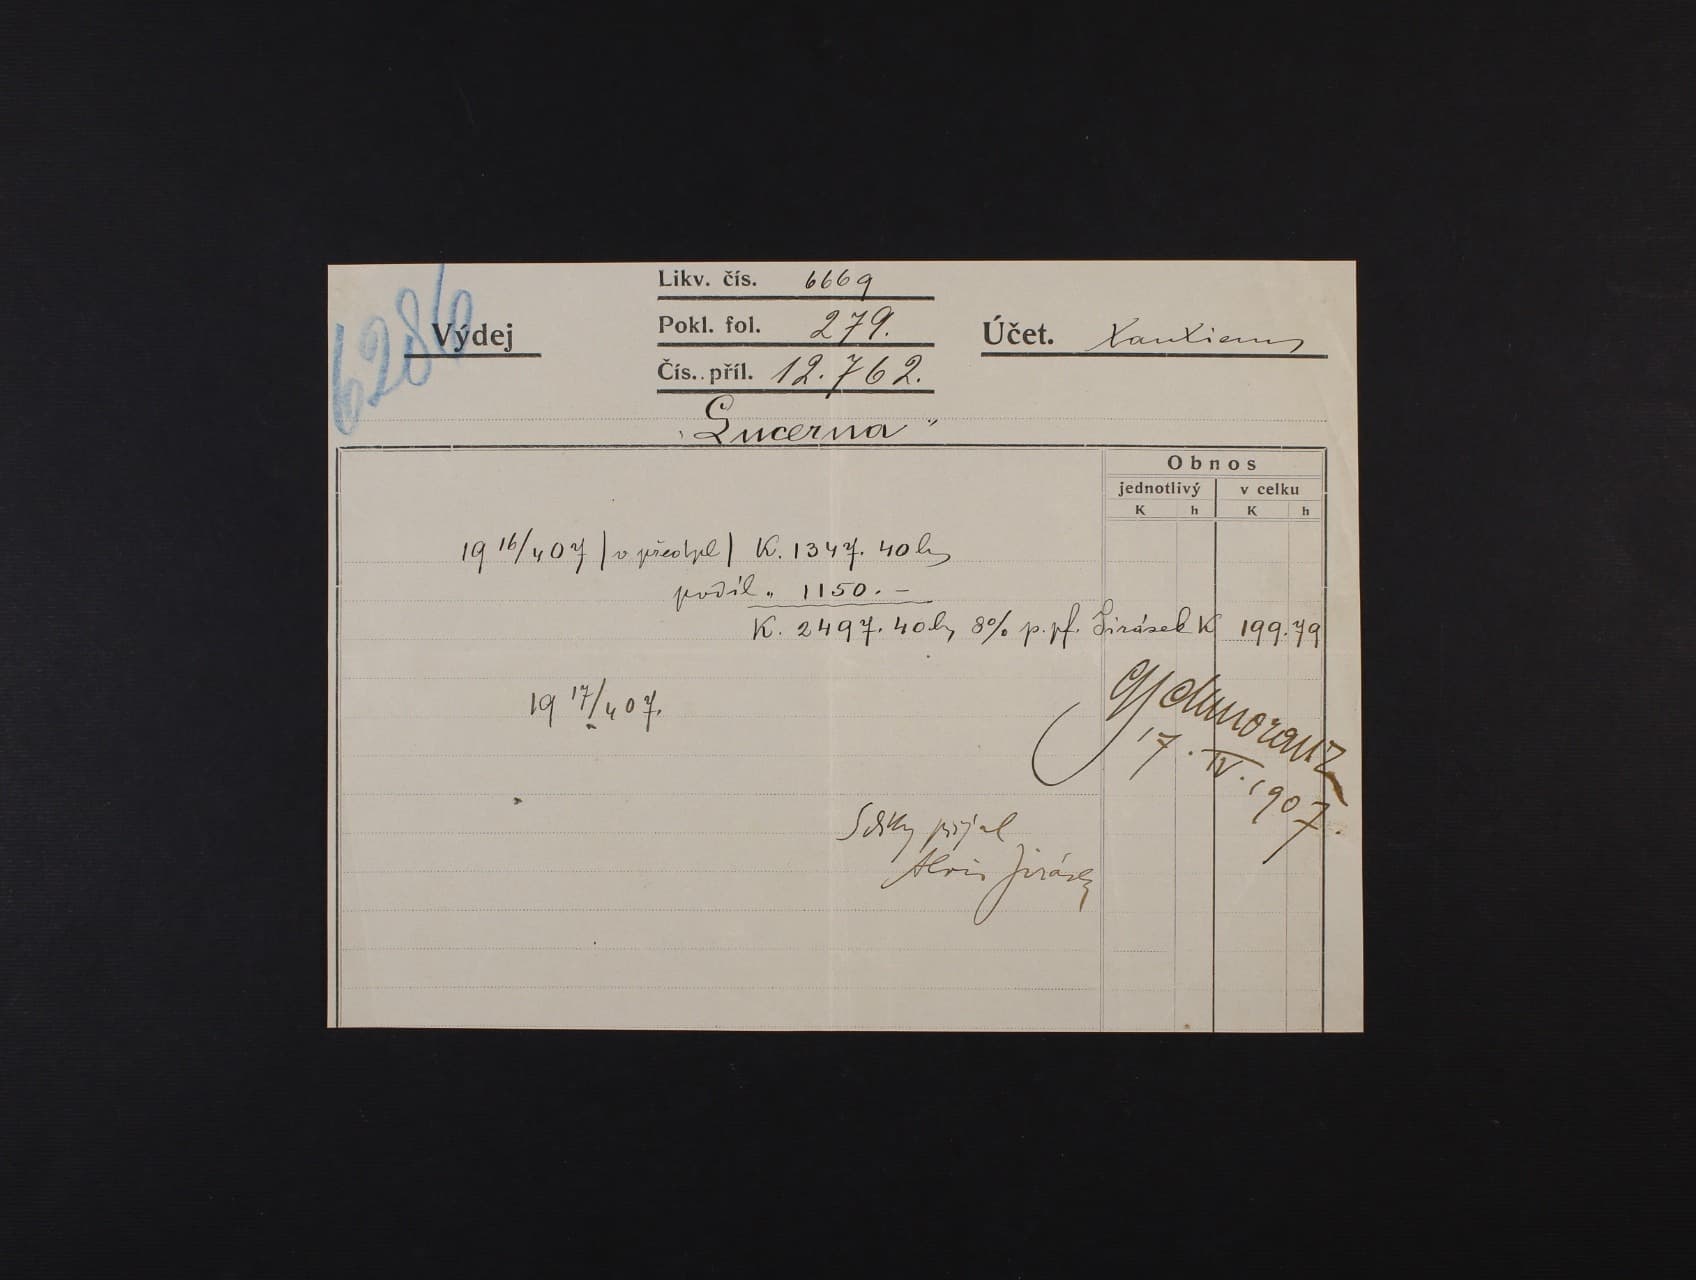 6286
Výdej
Likv. čís. 6669
Pokl. fol. 279.
Čís. příl. 12.762.
Účet. Tantiem
„Lucerna"
Obnos
jednotlivý v celku
K h K h
19 16/4 07 (v předpl) K. 1347. 40 h
podíl „ 1150. –
K. 2497. 40 h 8% p. pf. Jirásek K 199.79
19 17/4 07.
GSchmoranz
17. IV. 1907.
přijal
Alois Jirásek